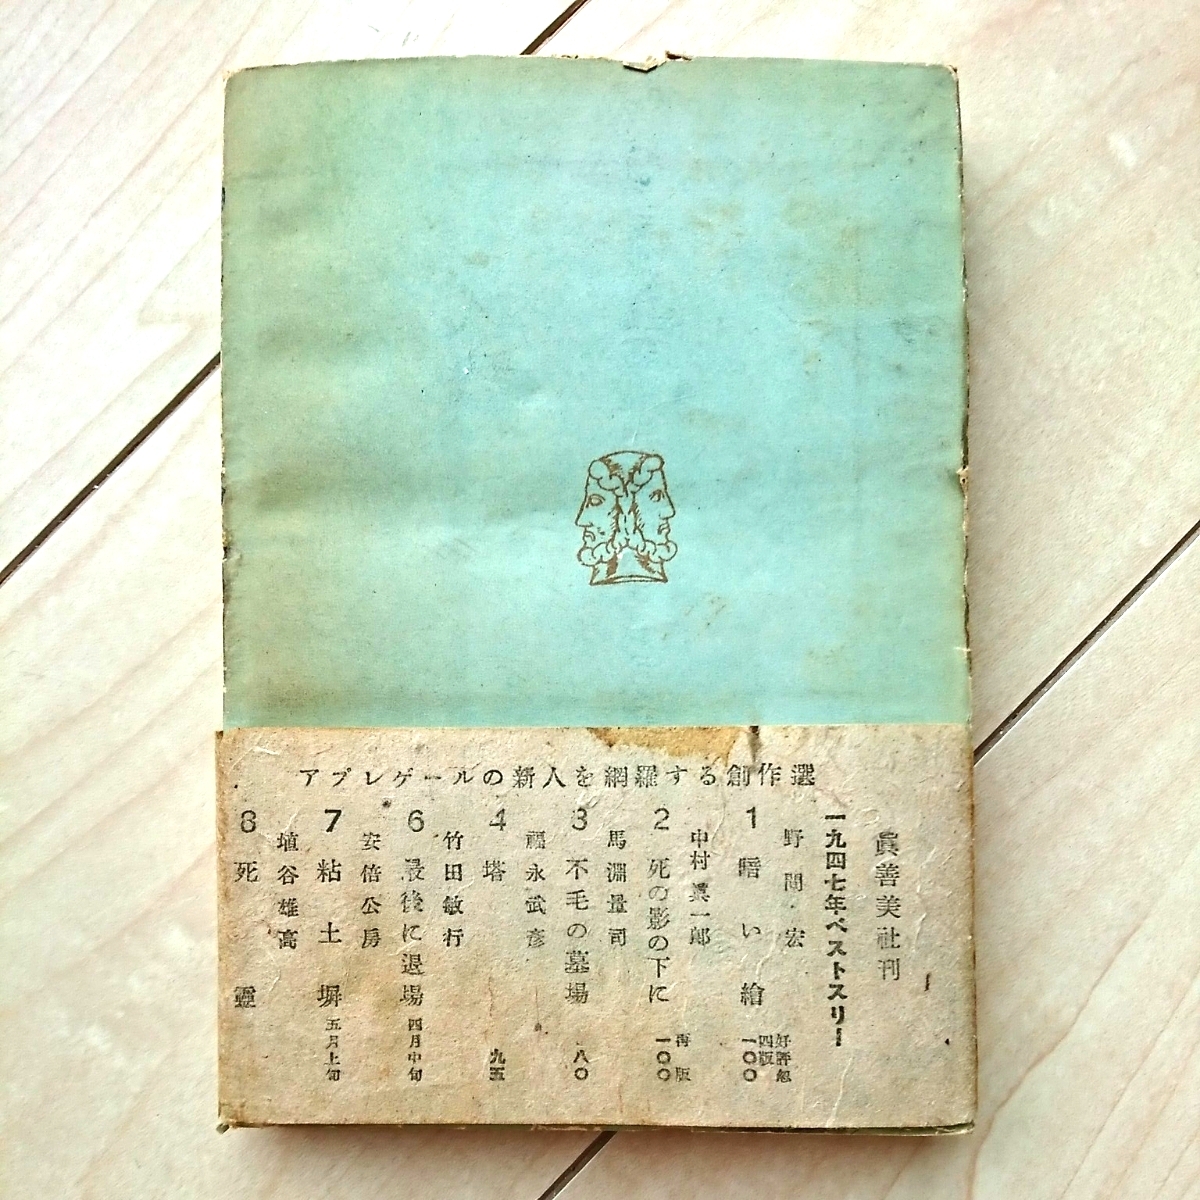 アプレゲールの新人を網羅する創作選
眞善美社刊
一九四七年ベストスリー
野間宏
1 暗い繪
好評忽
四版
一〇〇
中村眞一郎
2 死の影の下に
再版
一〇〇
馬淵量司
3 不毛の墓場
八〇
福永武彦
4 塔
九五
竹田敏行
6 最後に退場
四月中旬
安倍公房
7 粘土塀
五月上旬
埴谷雄高
8 死靈